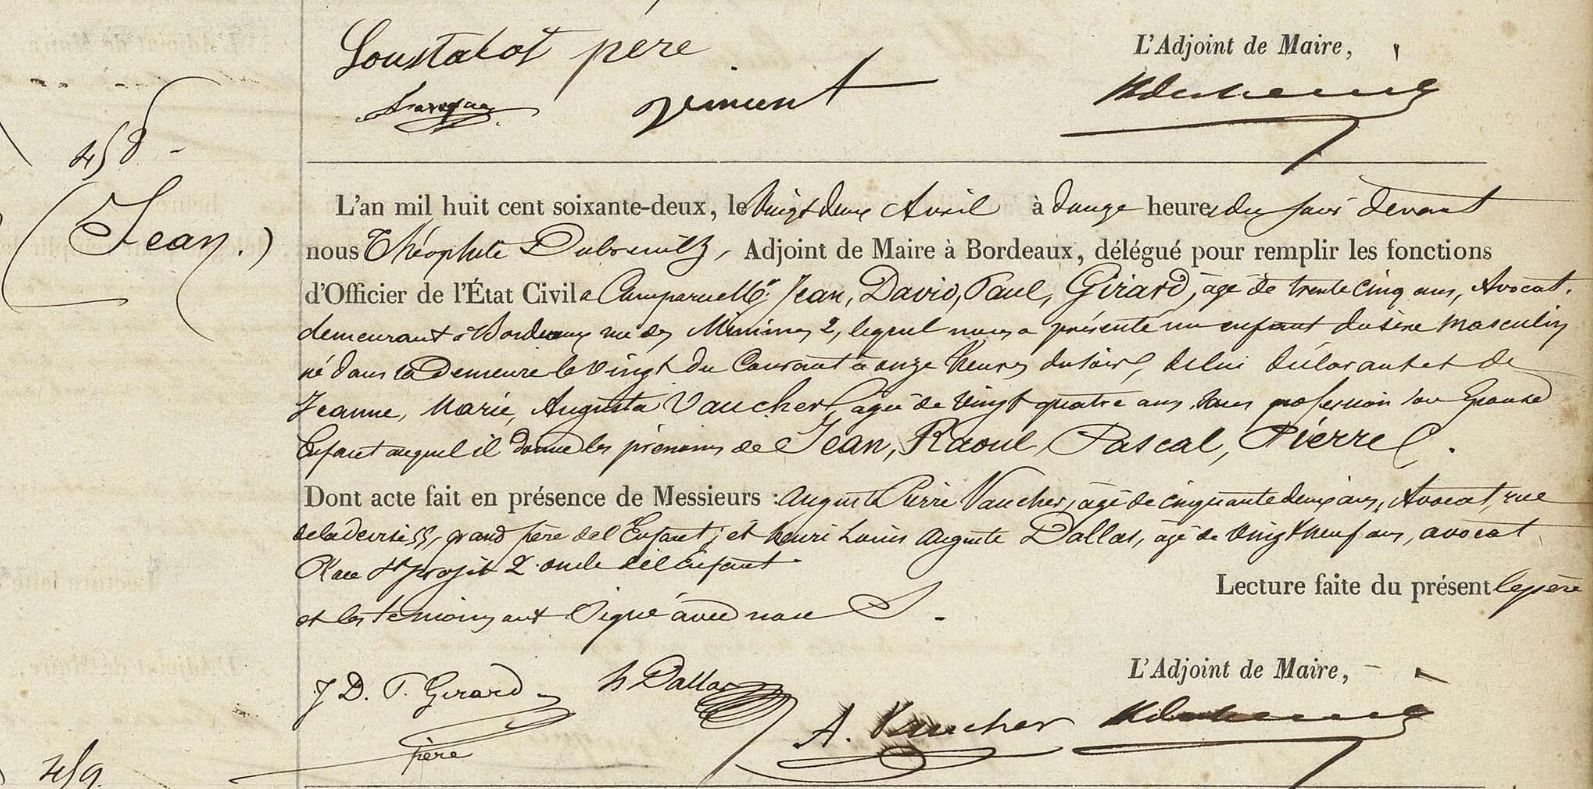 Loustalot père
L'Adjoint de Maire,
458
(Jean.)
L'an mil huit cent soixante-deux, le Vingt deux Avril à douze heures du soir devant
nous Théophile Dubreuilh, Adjoint de Maire à Bordeaux, délégué pour remplir les fonctions
d'Officier de l'État Civil a Comparu Mr. Jean, David, Paul, Girard, âgé de trente cinq ans, Avocat.
demeurant à Bordeaux rue des Minimes 2, lequel nous a présenté un enfant du sexe masculin
né dans sa Demeure le Vingt du Courant à onze heures du soir, de lui déclarant et de
Jeanne, Marie, Augusta Vaucher, âgée de Vingt quatre ans sans profession son Epouse
Enfant auquel il donne les prénoms de Jean, Raoul Pascal, Pierre.
Dont acte fait en présence de Messieurs : Auguste Pierre Vaucher, âgé de cinquante deux ans, Avocat, rue
de la Devise 55, grand père de l'Enfant; et henri Louis Auguste Dallas, âgé de Vingt neuf ans, avocat
Place St projet 2 oncle de l'Enfant.
Lecture faite du présent le père
et les témoins ont Signé avec nous
L'Adjoint de Maire,
J D. P. Girard
père
h Dallas
A. Vaucher
459.